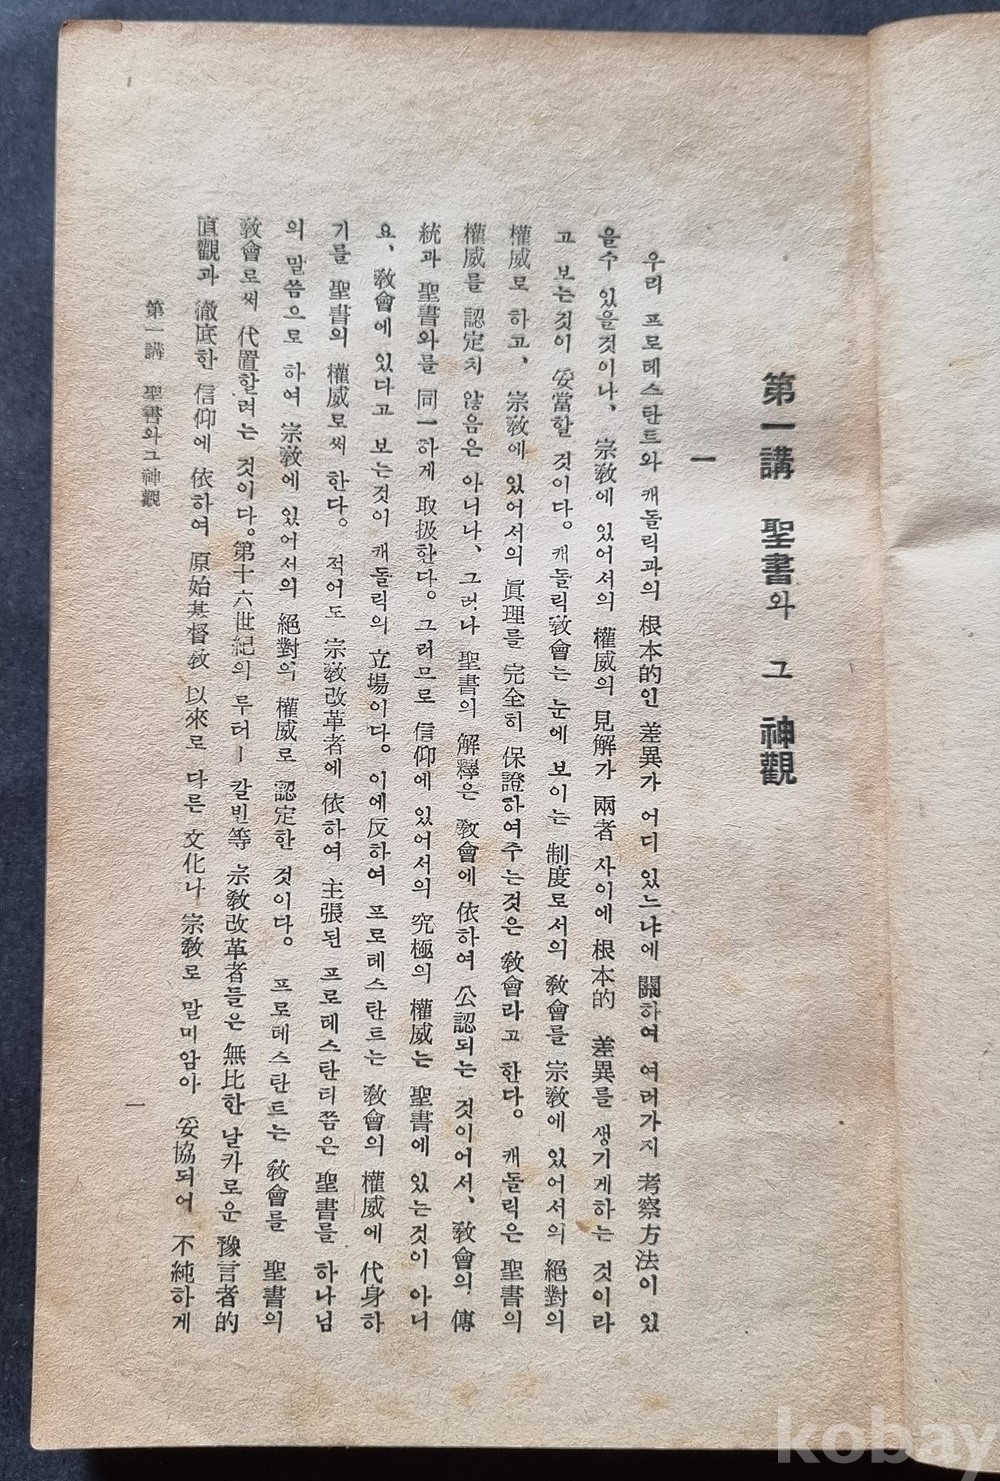 第一講 聖書와 그 神觀
一
우리 프로테스탄트와 캐돌릭과의 根本的인 差異가 어디 있느냐에 關하여 여러가지 考察方法이 있
을수 있을것이나、 宗敎에 있어서의 權威의 見解가 兩者 사이에 根本的 差異를 생기게하는 것이라
고 보는것이 妥當할 것이다。 캐돌릭敎會는 눈에 보이는 制度로서의 敎會를 宗敎에 있어서의 絕對의
權威로 하고、 宗敎에 있어서의 眞理를 完全히 保證하여주는것은 敎會라고 한다。 캐돌릭은 聖書의
權威를 認定치 않음은 아니나、 그러나 聖書의 解釋은 敎會에 依하여 公認되는 것이어서、 敎會의 傳
統과 聖書와를 同一하게 取扱한다。 그러므로 信仰에 있어서의 究極의 權威는 聖書에 있는것이 아니
요、 敎會에 있다고 보는것이 캐돌릭의 立場이다。 이에反하여 프로테스탄트는 敎會의 權威에 代身하
기를 聖書의 權威로써 한다。 적어도 宗敎改革者에 依하여 主張된 프로테스탄티쯤은 聖書를 하나님
의 말씀으로 하여 宗敎에 있어서의 絕對의 權威로 認定한 것이다。 프로테스탄트는 敎會를 聖書의
敎會로써 代置할려는 것이다。第十六世紀의 루터ー 칼빈等 宗敎改革者들은 無比한 날카로운 豫言者的
直觀과 徹底한 信仰에 依하여 原始基督敎 以來로 다른 文化나 宗敎로 말미암아 妥協되어 不純하게
第一講 聖書와그神觀
一
kobay